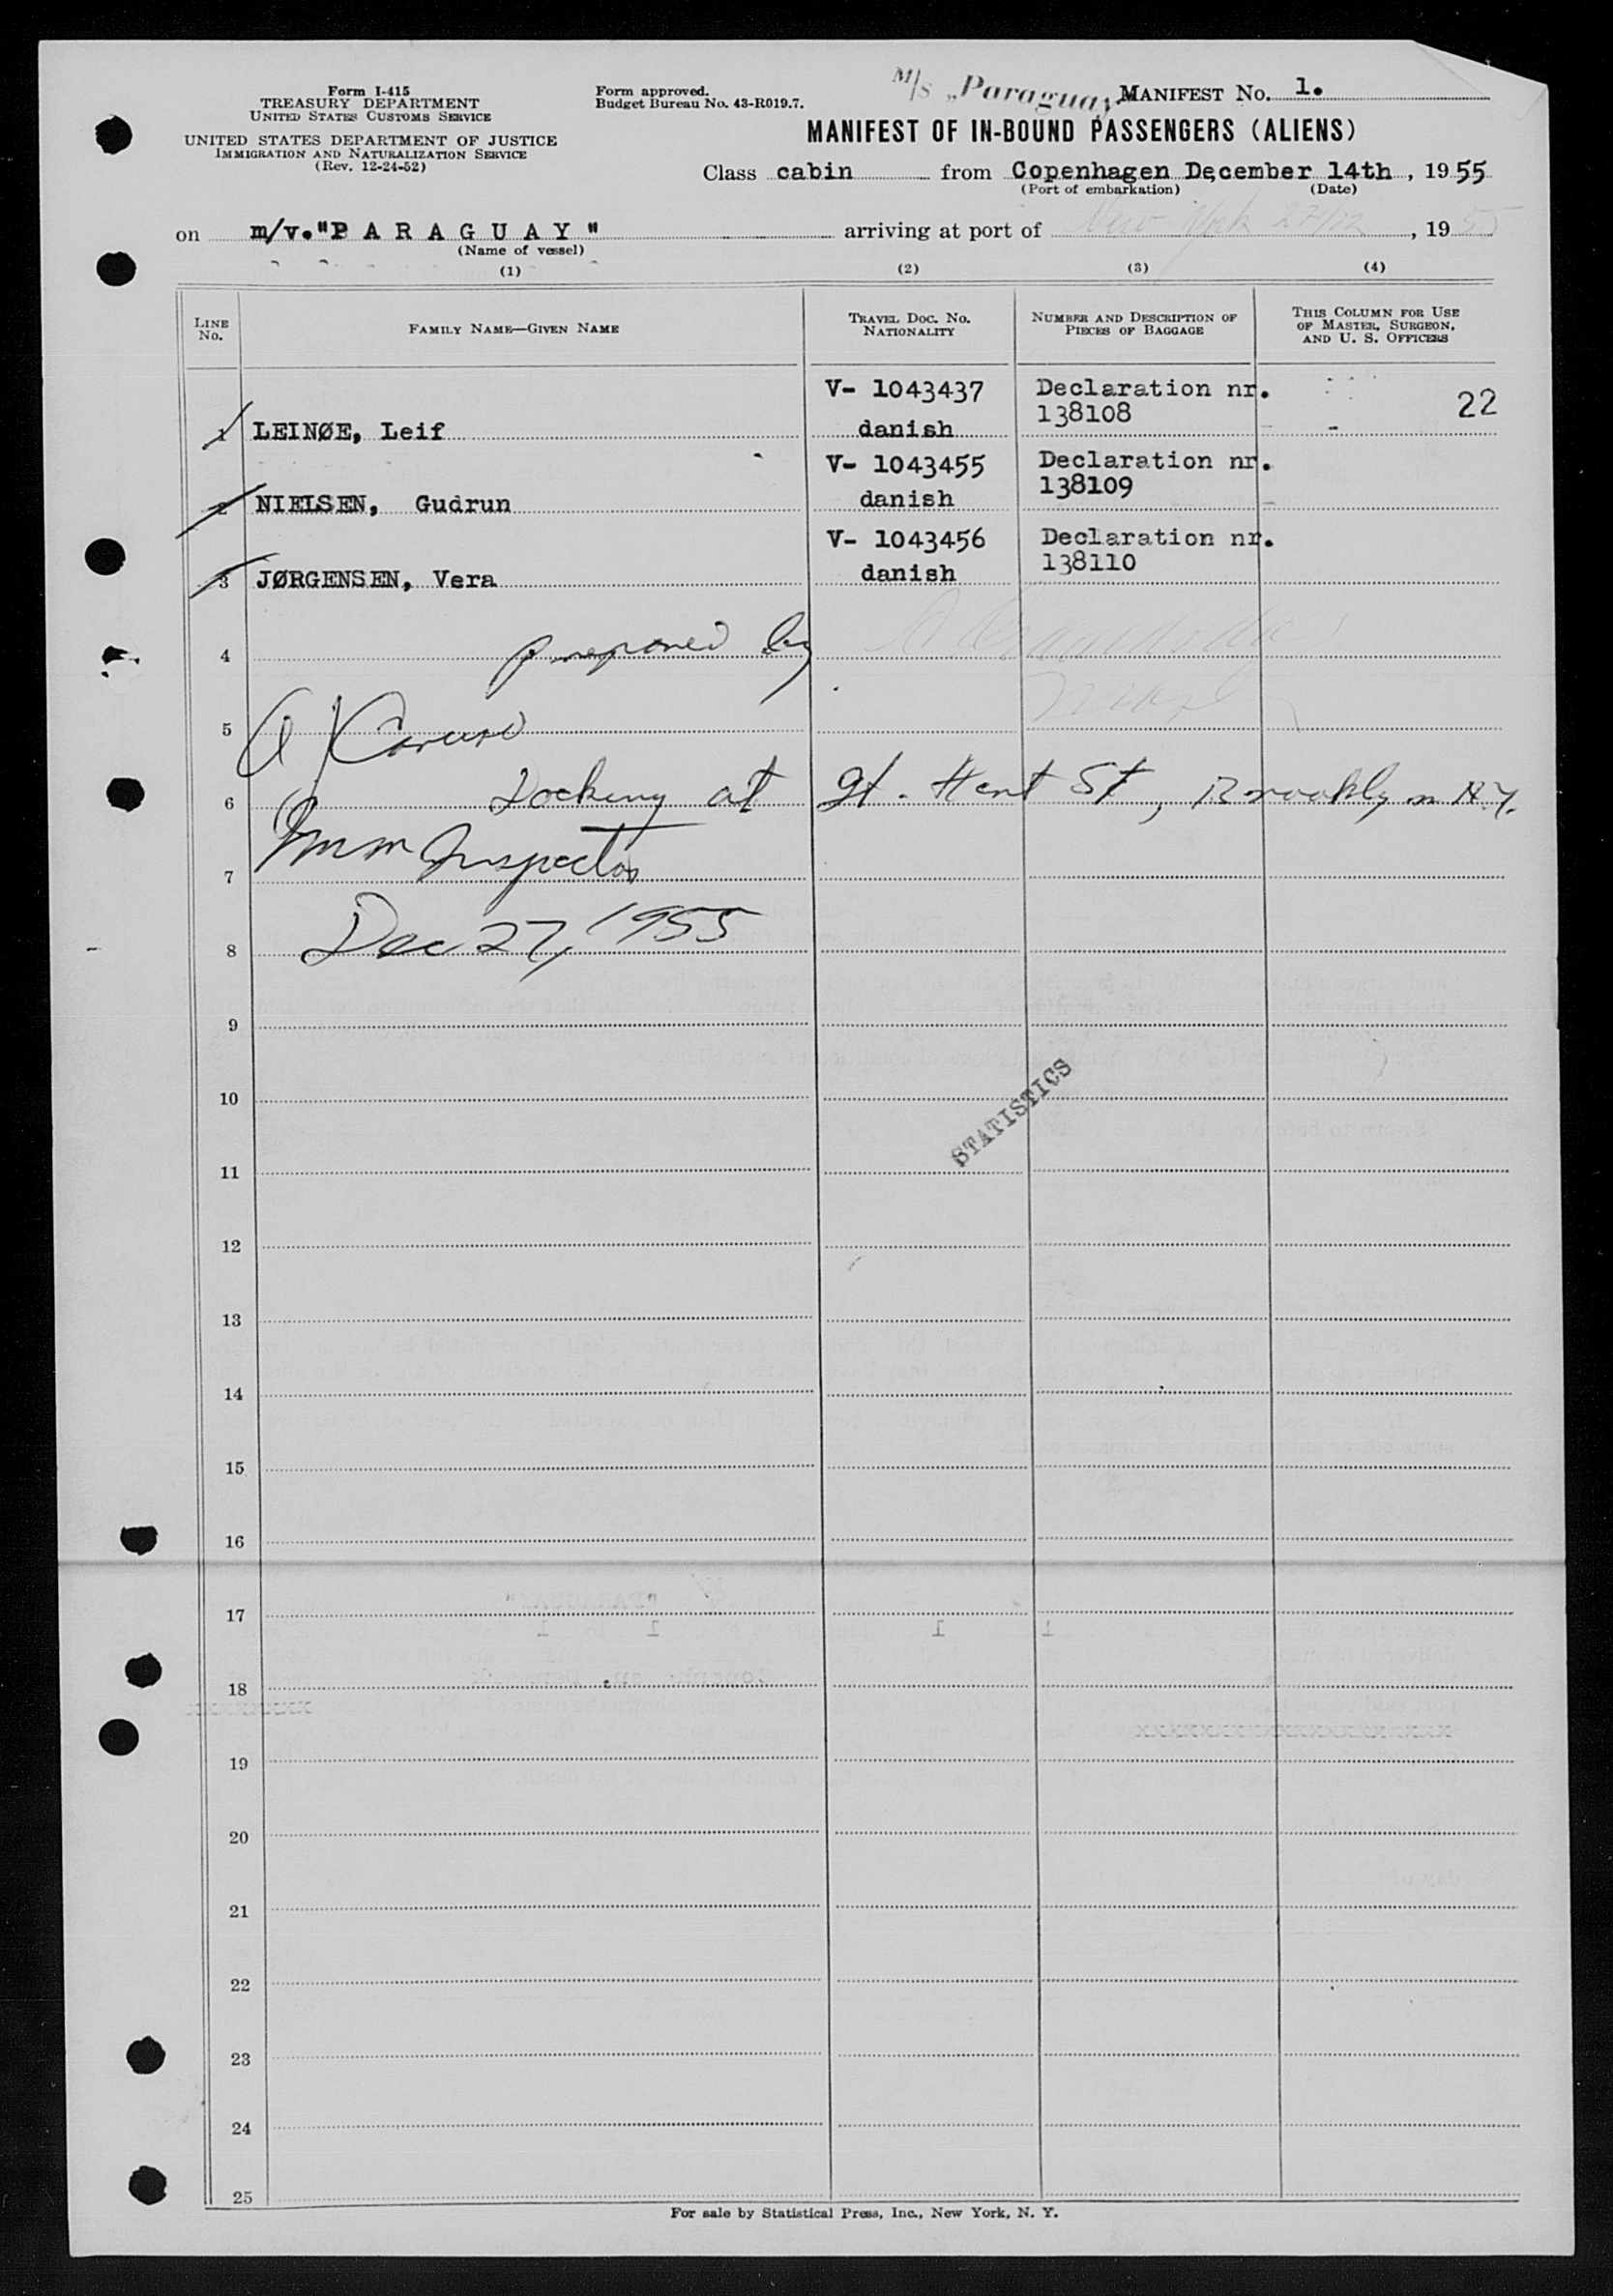 Form I-415
TREASURY DEPARTMENT
UNITED STATES CUSTOMS SERVICE
UNITED STATES DEPARTMENT OF JUSTICE
IMMIGRATION AND NATURALIZATION SERVICE
(Rev. 12-24-52)
Form approved.
Budget Bureau No. 43-R019.7.
M/s „Paraguay"
MANIFEST NO. 1.
MANIFEST OF IN-BOUND PASSENGERS (ALIENS)
Class cabin from Copenhagen December 14th, 1955
(Port of embarkation) (Date)
on m/v."P A R A G U A Y" arriving at port of New York 27/12, 1955
(Name of vessel)
(1) (2) (3) (4)
LINE NO.
FAMILY NAME—GIVEN NAME
TRAVEL DOC. NO. NATIONALITY
NUMBER AND DESCRIPTION OF PIECES OF BAGGAGE
THIS COLUMN FOR USE OF MASTER, SURGEON, AND U. S. OFFICERS
V- 1043437 Declaration nr.
138108 22
1 LEINØE, Leif danish
V- 1043455 Declaration nr.
138109
2 NIELSEN, Gudrun danish
V- 1043456 Declaration nr.
138110
3 JØRGENSEN, Vera danish
4 by
5 A Caruso
6 Docking at St, Brooklyn N.Y.
7 Imm Inspector
8 Dec 27, 1955
9
10
STATISTICS
11
12
13
14
15
16
17
18
19
20
21
22
23
24
25
For sale by Statistical Press, Inc., New York, N. Y.